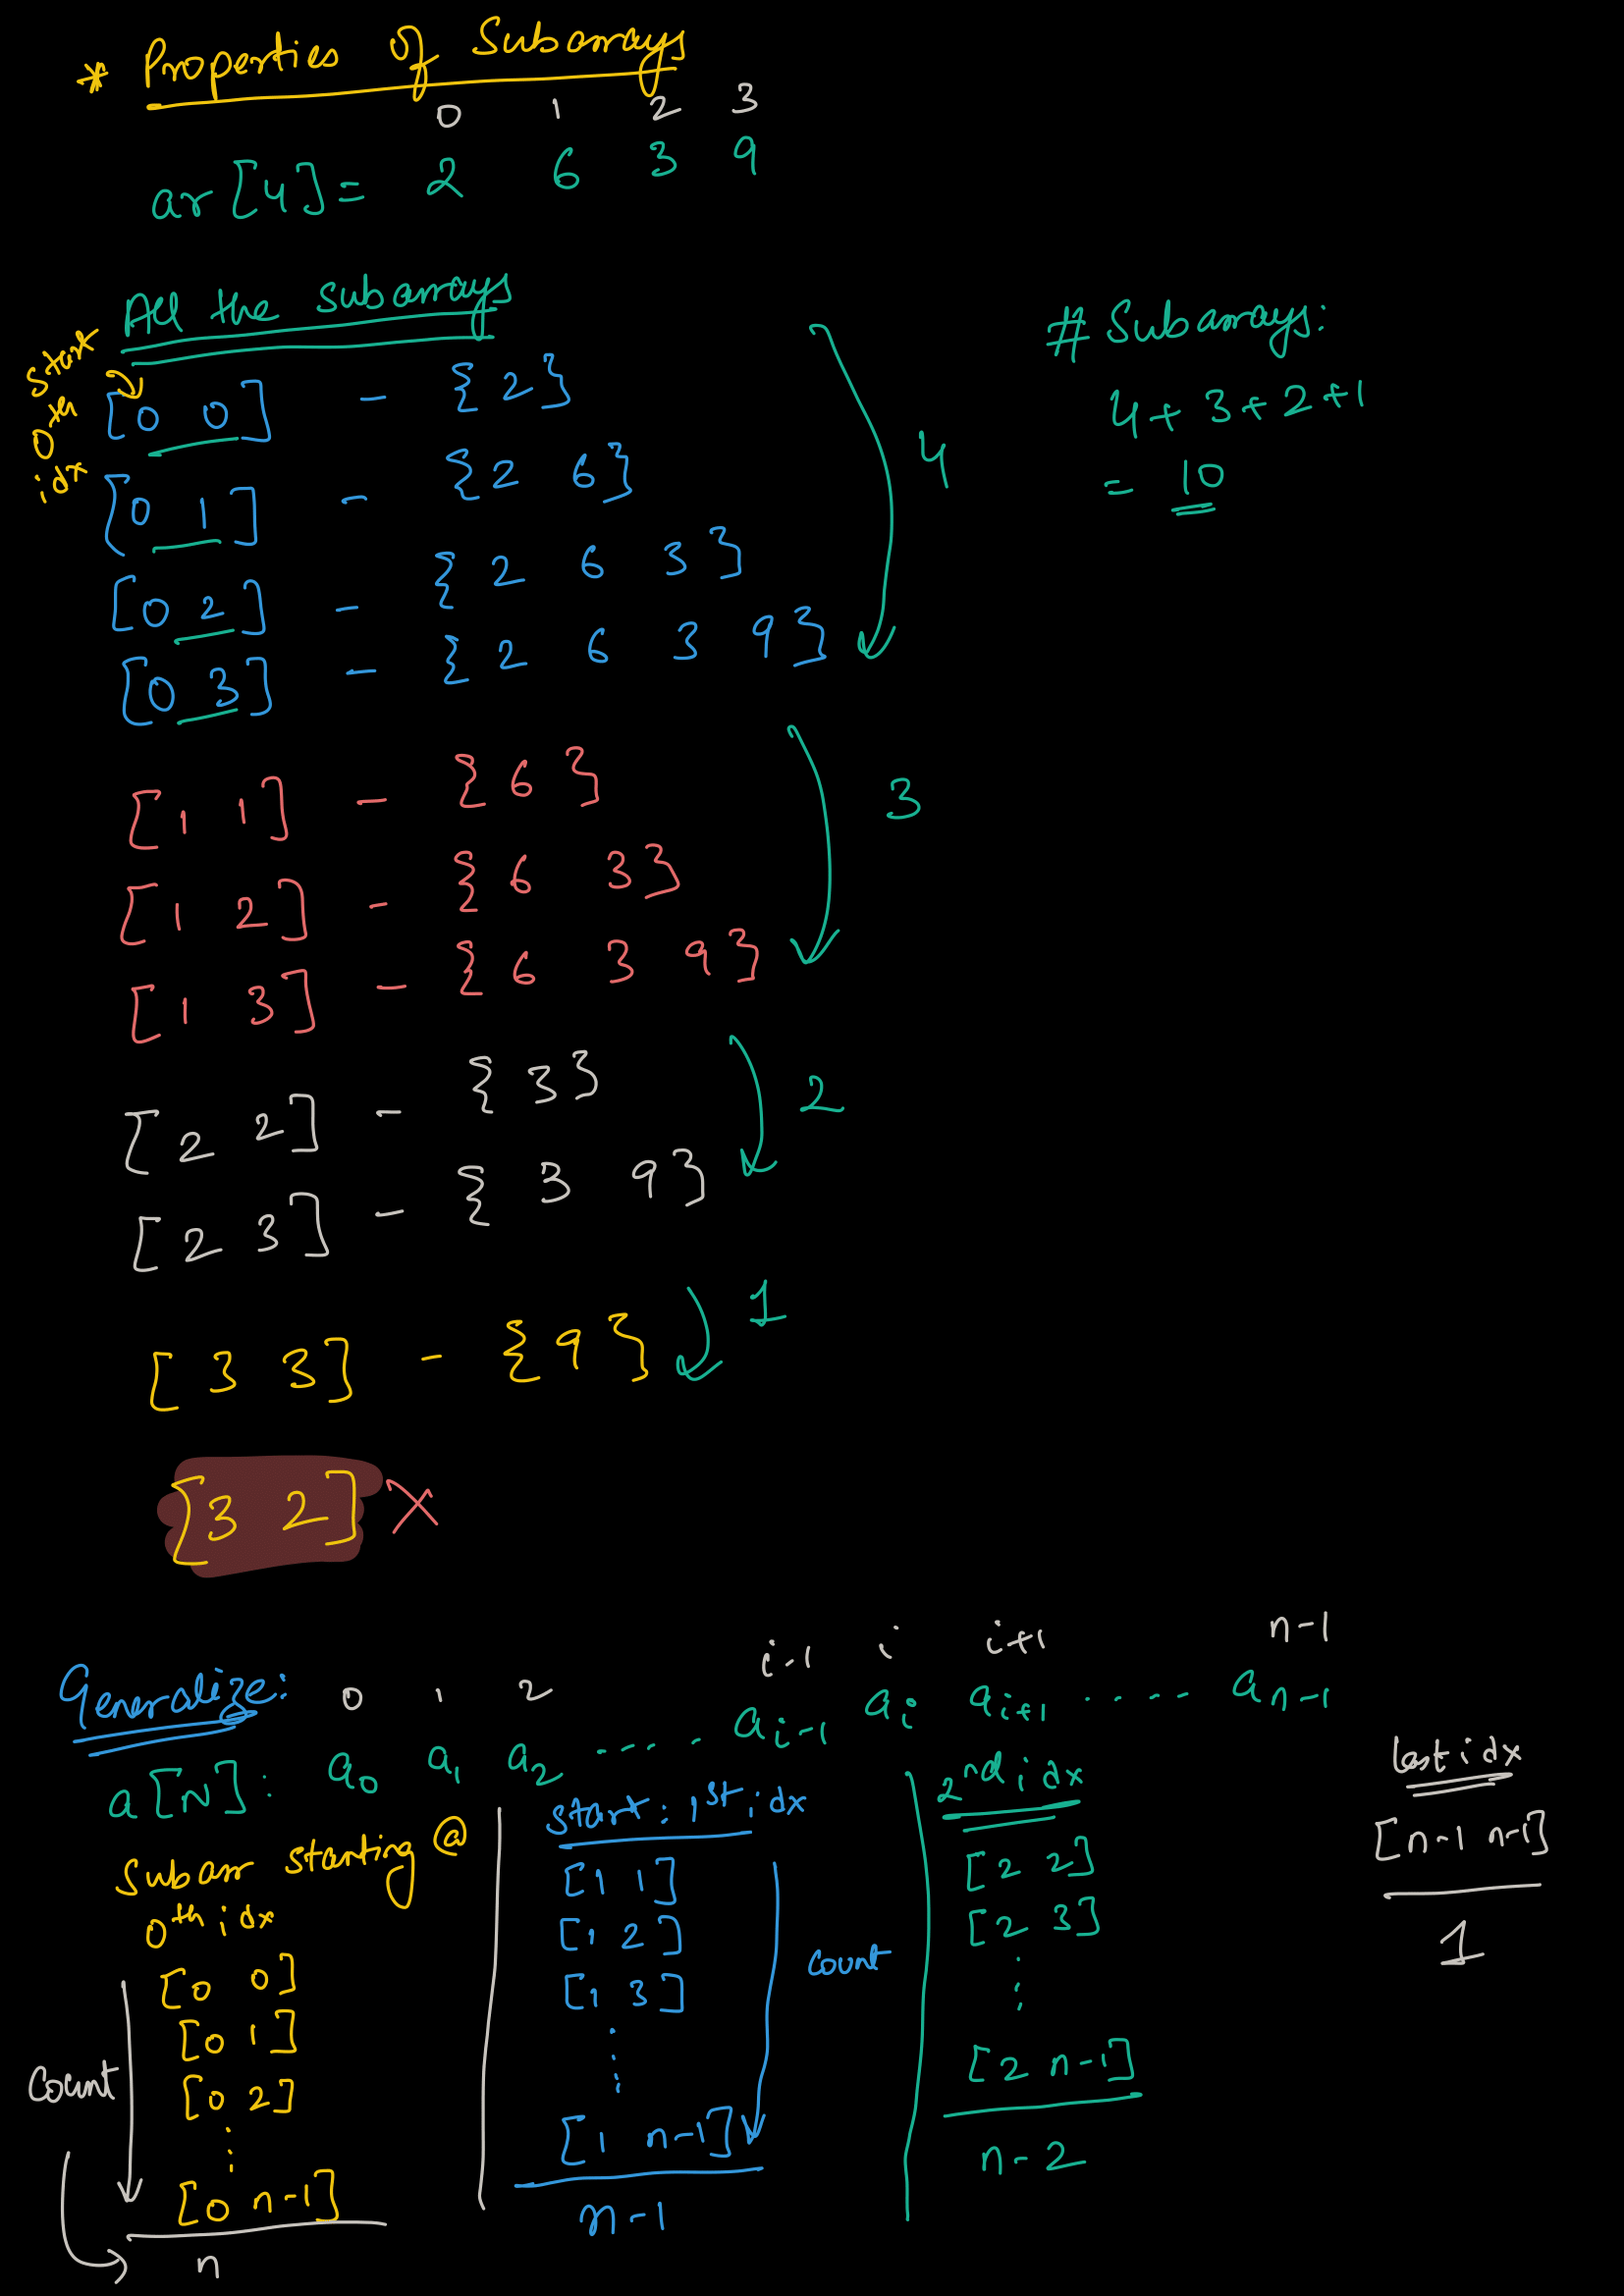 * Properties of Subarrays
0 1 2 3
ar[4] = 2 6 3 9
All the subarrays
start 0th idx
[0 0] - {2}
[0 1] - {2 6}
[0 2] - {2 6 3}
[0 3] - {2 6 3 9}
4
# Subarrays:
4 + 3 + 2 + 1
= 10
[1 1] - {6}
[1 2] - {6 3}
[1 3] - {6 3 9}
3
[2 2] - {3}
[2 3] - {3 9}
2
[3 3] - {9}
1
[3 2] X
Generalize:
0 1 2 i-1 i i+1 n-1
a[N]: a0 a1 a2 ..... ai-1 ai ai+1 ..... an-1
Subarr starting @
0th idx
[0 0]
[0 1]
[0 2]
⋮
[0 n-1]
count
n
start: 1st idx
[1 1]
[1 2]
[1 3]
⋮
[1 n-1]
count
n-1
2nd idx
[2 2]
[2 3]
⋮
[2 n-1]
n-2
last idx
[n-1 n-1]
1